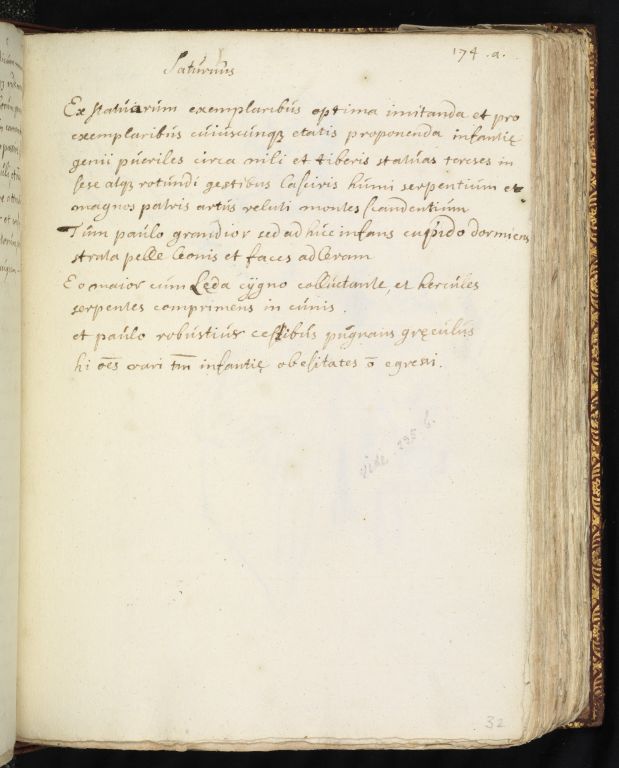 174 . a .
Saturnus
Ex statuarum exemplaribus optima imitanda et pro
exemplaribus cuiuscunqz etatis proponenda infantię
genii pueriles circa nili et tiberis statuas tereses in
sese atqz rotundi gestibus lascivis humi serpentium et
magnos patris artus veluti montes scandentium
Tum paulo grandior sed adhuc infans cupido dormiens
strata pelle leonis et faces ad
Eo maior cum Leda cygno colluctante, et hercules
serpentes comprimens in cunis .
et paulo robustius cestibus pugnans gręculus
hi oēs vari tm̄ infantię obesitates ō egressi .
vide . 295 b.
32